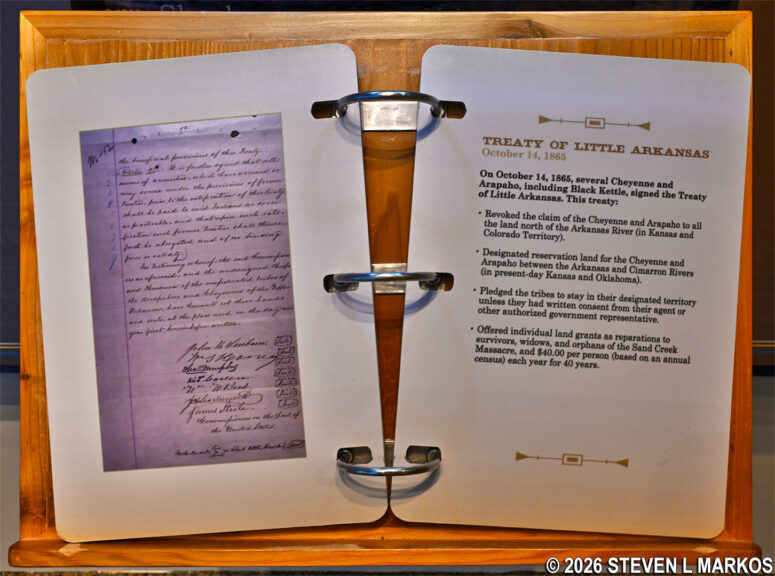 the beneficial provisions of this Treaty
It is further agreed that all
arrears of annuities, which have accrued or
may accrue under the provisions of former
treaties, prior to the ratification of this treaty
shall be paid to said Indians as soon
as practicable, and that upon such ratification
such former Treaties shall thence-
forth be abrogated and of no binding
force or validity.
In testimony whereof, the said Commissioners
as aforesaid, and the undersigned, chiefs
and Headmen of the confederated tribes of
the Arapahoes and Cheyennes of the Upper
Arkansas, have hereunto set their hands
and seals, at the place and on the day and
year first hereinbefore written.
John B. Sanborn
Wm S Harney
Kit Carson
Wm W. Bent
James Steele
Commissioners on the part of
the United States.
TREATY OF LITTLE ARKANSAS
October 14, 1865
On October 14, 1865, several Cheyenne and
Arapaho, including Black Kettle, signed the Treaty
of Little Arkansas. This treaty:
· Revoked the claim of the Cheyenne and Arapaho to all
the land north of the Arkansas River (in Kansas and
Colorado Territory).
· Designated reservation land for the Cheyenne and
Arapaho between the Arkansas and Cimarron Rivers
(in present-day Kansas and Oklahoma).
· Pledged the tribes to stay in their designated territory
unless they had written consent from their agent or
other authorized government representative.
· Offered individual land grants as reparations to
survivors, widows, and orphans of the Sand Creek
Massacre, and $40.00 per person (based on an annual
census) each year for 40 years.
© 2026 STEVEN L MARKOS